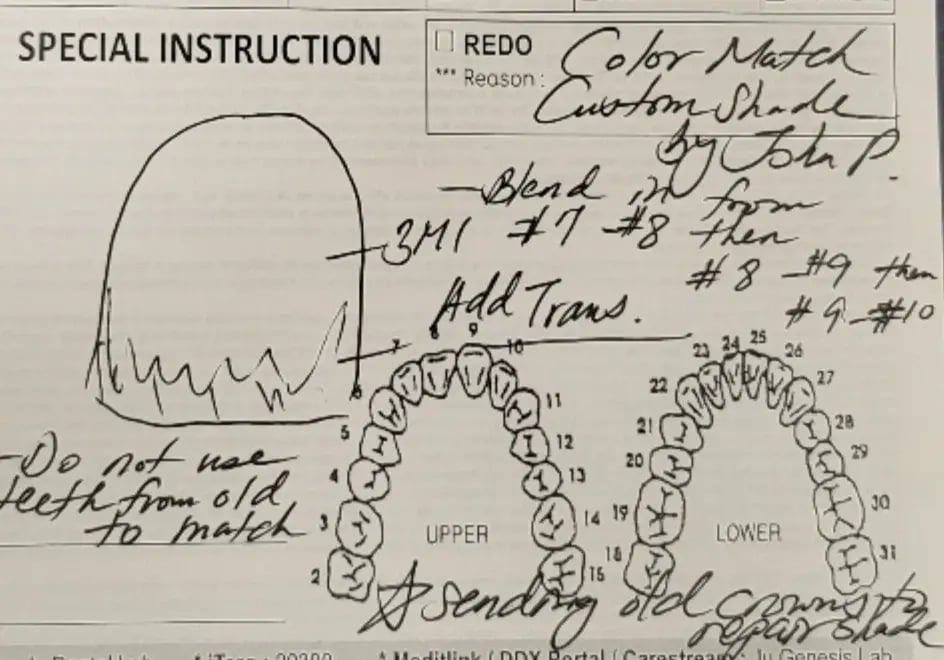 SPECIAL INSTRUCTION
REDO
*** Reason :
Color Match
Custom Shade
by John P.
- Blend in from
#7 #8 then
#8 - #9 then
#9 - #10
3M1
Add Trans.
- Do not use
teeth from old
to match
UPPER
2
3
4
5
6
7
8
9
10
11
12
13
14
15
LOWER
18
19
20
21
22
23
24
25
26
27
28
29
30
31
☆ sending old crowns to
repair shade
* Meditlink / DDX Portal / Carestream : Ju Genesis Lab